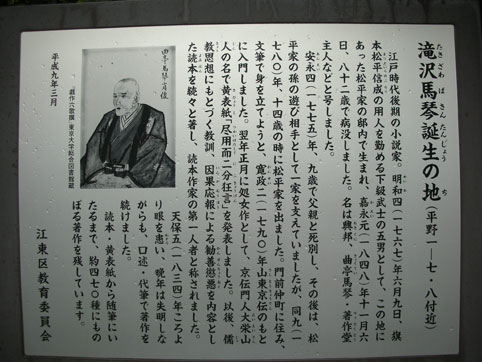 滝沢馬琴誕生の地
たきざわ ばきん たんじょう ち
(平野一—七・八付近)
江戸時代後期の小説家。明和四(一七六七)年六月九日、旗
本松平信成の用人を勤める下級武士の五男として、この地に
あった松平家の邸内で生まれ、嘉永元(一八四八)年十一月六
日、八十二歳で病没しました。名は興邦、曲亭馬琴・著作堂
主人などと号しました。
安永四(一七七五)年、九歳で父親と死別し、その後は、松
平家の孫の遊び相手として一家を支えていましたが、同九(一
七八〇)年、十四歳の時に松平家を出ました。門前仲町に住み、
文筆で身を立てようと、寛政二(一七九〇)年山東京伝のもと
に入門しました。翌年正月に処女作として、京伝門人大栄山
人の名で黄表紙「尽用而二分狂言」を発表しました。以後、儒
教思想にもとづく教訓、因果応報による勧善懲悪を内容とし
た読本を続々と著し、読本作家の第一人者と称されました。
天保五(一八三四)年ころよ
り眼を患い、晩年は失明しな
がらも、口述・代筆で著作を
続けました。
読本・黄表紙から随筆にい
たるまで、約四七〇種にもの
ぼる著作を残しています。
戯作六歌撰 東京大学総合図書館蔵
平成九年三月
江東区教育委員会